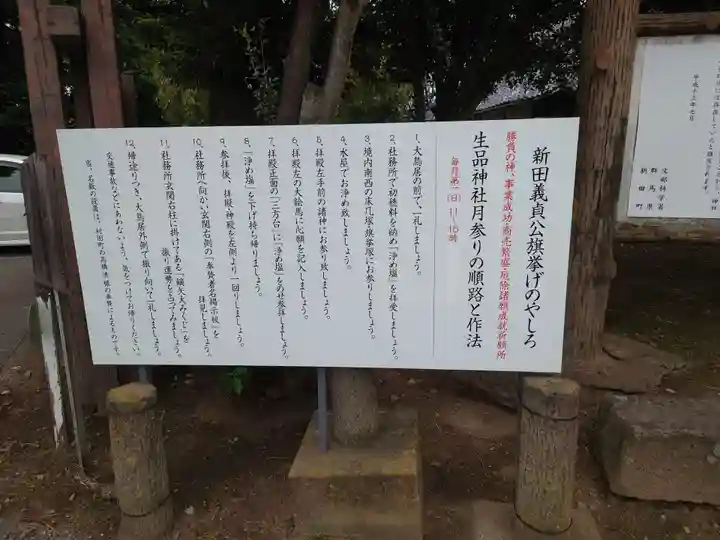 新田義貞公旗挙げのやしろ
勝負の神、事業成功・商売繁盛・厄除諸願成就祈願所
生品神社月参りの順路と作法
毎月第一(日)11〜15時
1、大鳥居の前で、一礼しましょう。
2、社務所で初穂料を納め「浄め塩」を拝受しましょう。
3、境内南西の床几塚・旗挙塚にお参りしましょう。
4、水屋でお浄め致しましょう。
5、拝殿左手前の諸神にお参り致しましょう。
6、拝殿左の大絵馬に心願を記入しましょう。
7、拝殿正面の「三方台」に「浄め塩」をのせ参拝しましょう。
8、「浄め塩」を下げ持ち帰りましょう。
9、参拝後、拝殿、神殿を左側より一回りしましょう。
10、社務所へ向かい玄関右側の「奉賛者名掲示板」を
拝見しましょう。
11、社務所玄関右柱に掛けてある「鏑矢大みくじ」を
振り運勢を占ってみましょう。
12、帰途りつき、大鳥居外側で振り向いて一礼しましょう。
交通事故などにあわないよう、気をつけてお帰りください。
文部科学省
群馬県
新田町
平成十三年七月